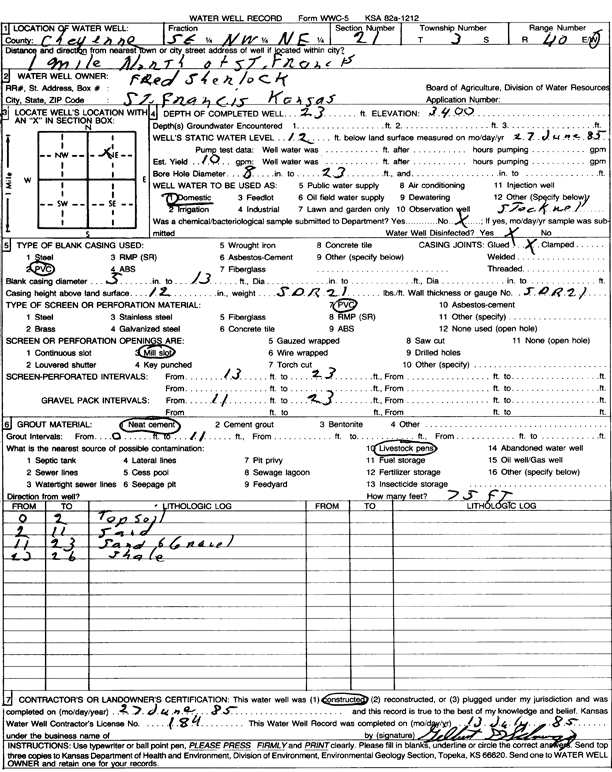 WATER WELL RECORD Form WWC-5 KSA 82a-1212
1 LOCATION OF WATER WELL: Fraction Section Number Township Number Range Number
County: Cheyenne SE ¼ NW ¼ NE ¼ 21 T 3 S R 40 E/W
Distance and direction from nearest town or city street address of well if located within city?
1 mile North of ST. Francis
2 WATER WELL OWNER: Fred Sherlock
RR#, St. Address, Box # : Board of Agriculture, Division of Water Resources
City, State, ZIP Code : ST. Francis Kansas Application Number:
3 LOCATE WELL'S LOCATION WITH AN "X" IN SECTION BOX: 4 DEPTH OF COMPLETED WELL 23 ft. ELEVATION: 3400
Depth(s) Groundwater Encountered 1. ft. 2. ft. 3. ft.
WELL'S STATIC WATER LEVEL 12 ft. below land surface measured on mo/day/yr 27 June 85
Pump test data: Well water was ft. after hours pumping gpm
Est. Yield 10 gpm: Well water was ft. after hours pumping gpm
Bore Hole Diameter 8 in. to 23 ft., and in. to ft.
N
NW NE
W E
SW SE
S
1 Mile
X
WELL WATER TO BE USED AS: 5 Public water supply 8 Air conditioning 11 Injection well
1 Domestic 3 Feedlot 6 Oil field water supply 9 Dewatering 12 Other (Specify below)
2 Irrigation 4 Industrial 7 Lawn and garden only 10 Observation well Stock well
Was a chemical/bacteriological sample submitted to Department? Yes No X ; If yes, mo/day/yr sample was submitted
Water Well Disinfected? Yes X No
5 TYPE OF BLANK CASING USED: 5 Wrought iron 8 Concrete tile CASING JOINTS: Glued X Clamped
1 Steel 3 RMP (SR) 6 Asbestos-Cement 9 Other (specify below) Welded
2 PVC 4 ABS 7 Fiberglass Threaded
Blank casing diameter 5 in. to 13 ft., Dia in. to ft., Dia in. to ft.
Casing height above land surface 12 in., weight SDR21 lbs./ft. Wall thickness or gauge No. SDR21
TYPE OF SCREEN OR PERFORATION MATERIAL: 7 PVC 10 Asbestos-cement
1 Steel 3 Stainless steel 5 Fiberglass 8 RMP (SR) 11 Other (specify)
2 Brass 4 Galvanized steel 6 Concrete tile 9 ABS 12 None used (open hole)
SCREEN OR PERFORATION OPENINGS ARE: 5 Gauzed wrapped 8 Saw cut 11 None (open hole)
1 Continuous slot 3 Mill slot 6 Wire wrapped 9 Drilled holes
2 Louvered shutter 4 Key punched 7 Torch cut 10 Other (specify)
SCREEN-PERFORATED INTERVALS: From 13 ft. to 23 ft., From ft. to ft.
From ft. to ft., From ft. to ft.
GRAVEL PACK INTERVALS: From 11 ft. to 23 ft., From ft. to ft.
From ft. to ft., From ft. to ft.
6 GROUT MATERIAL: 1 Neat cement 2 Cement grout 3 Bentonite 4 Other
Grout Intervals: From 0 ft. to 11 ft., From ft. to ft., From ft. to ft.
What is the nearest source of possible contamination: 10 Livestock pens 14 Abandoned water well
1 Septic tank 4 Lateral lines 7 Pit privy 11 Fuel storage 15 Oil well/Gas well
2 Sewer lines 5 Cess pool 8 Sewage lagoon 12 Fertilizer storage 16 Other (specify below)
3 Watertight sewer lines 6 Seepage pit 9 Feedyard 13 Insecticide storage
Direction from well? How many feet? 75 FT
FROM TO LITHOLOGIC LOG FROM TO LITHOLOGIC LOG
0 2 Top Soil
2 11 Sand
11 23 Sand & Gravel
23 26 Shale
7 CONTRACTOR'S OR LANDOWNER'S CERTIFICATION: This water well was (1) constructed, (2) reconstructed, or (3) plugged under my jurisdiction and was
completed on (mo/day/year) 27 June 85 and this record is true to the best of my knowledge and belief. Kansas
Water Well Contractor's License No. 184 This Water Well Record was completed on (mo/day/yr) 13 July 85
under the business name of by (signature)
INSTRUCTIONS: Use typewriter or ball point pen, PLEASE PRESS FIRMLY and PRINT clearly. Please fill in blanks, underline or circle the correct answers. Send top
three copies to Kansas Department of Health and Environment, Division of Environment, Environmental Geology Section, Topeka, KS 66620. Send one to WATER WELL
OWNER and retain one for your records.